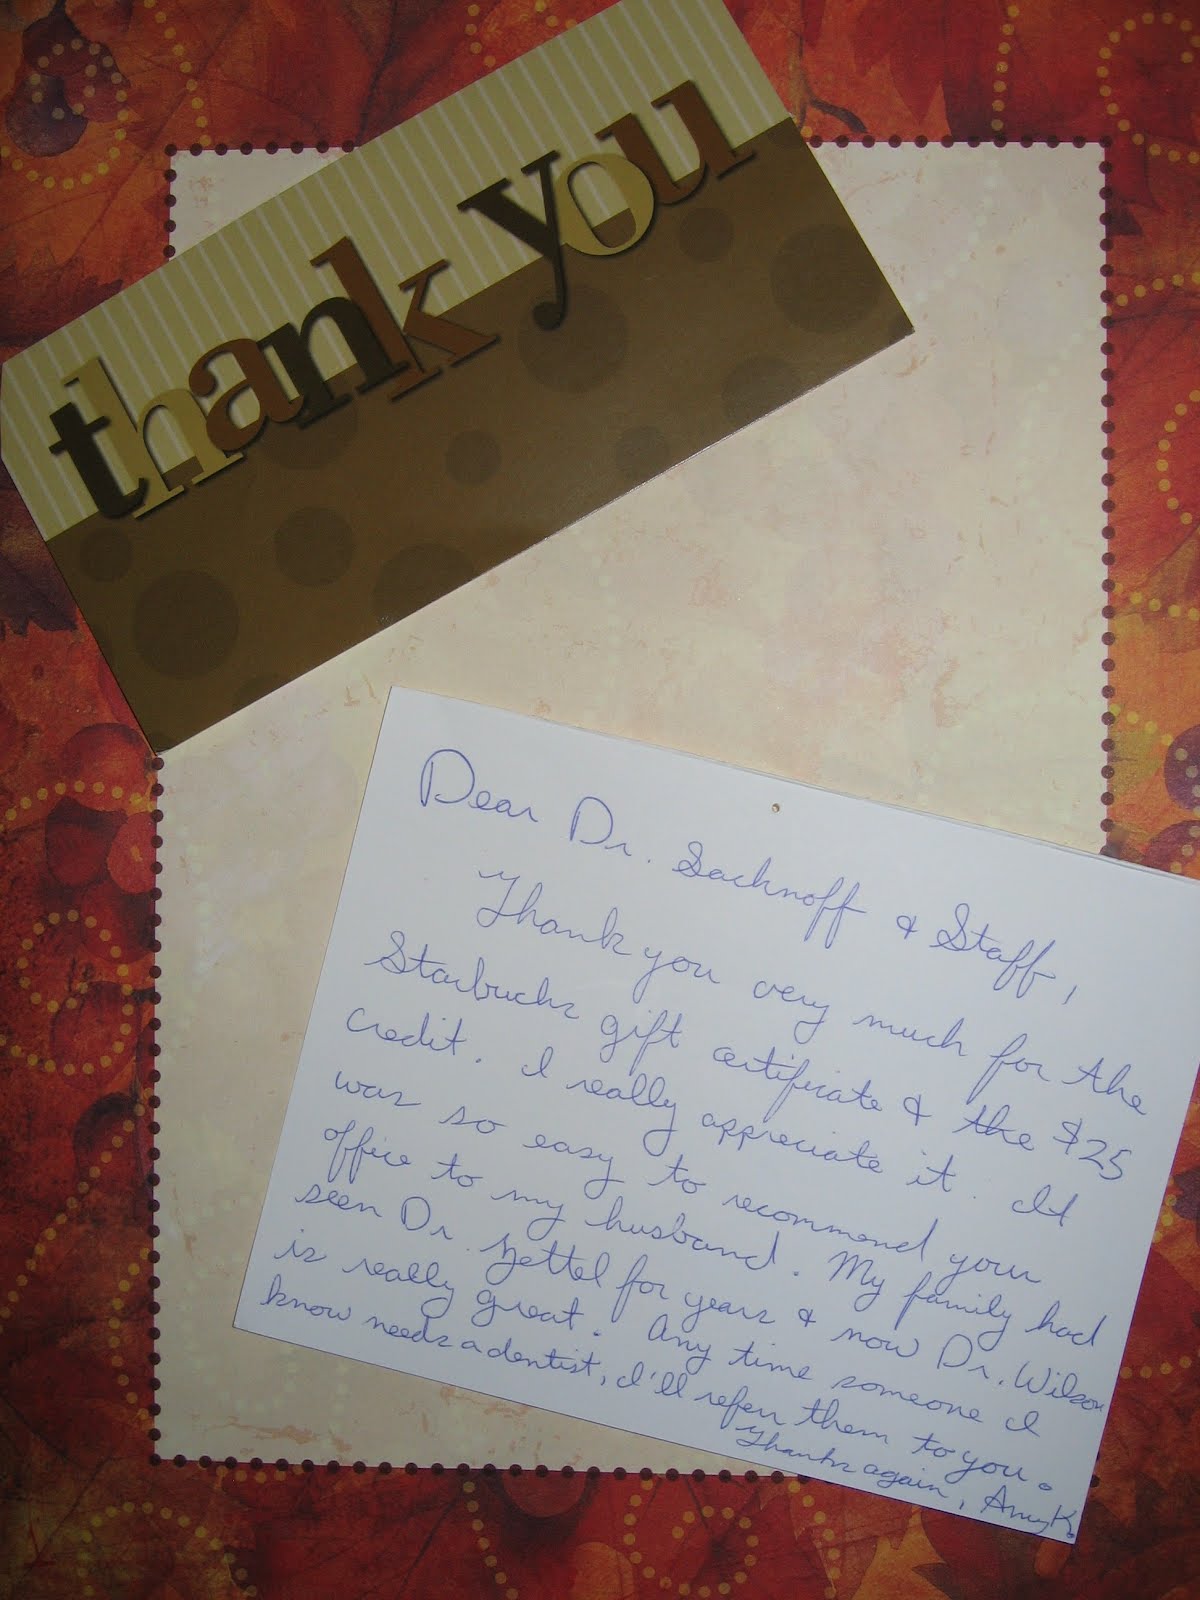 thank you
Dear Dr. Sacknoff & Staff,
Thank you very much for the
Starbucks gift certificate & the $25
credit. I really appreciate it. It
was so easy to recommend your
office to my husband. My family had
seen Dr. Zettel for years & now Dr. Wilson
is really great. Any time someone I
know needs a dentist, I'll refer them to you.
Thanks again, Amy K.